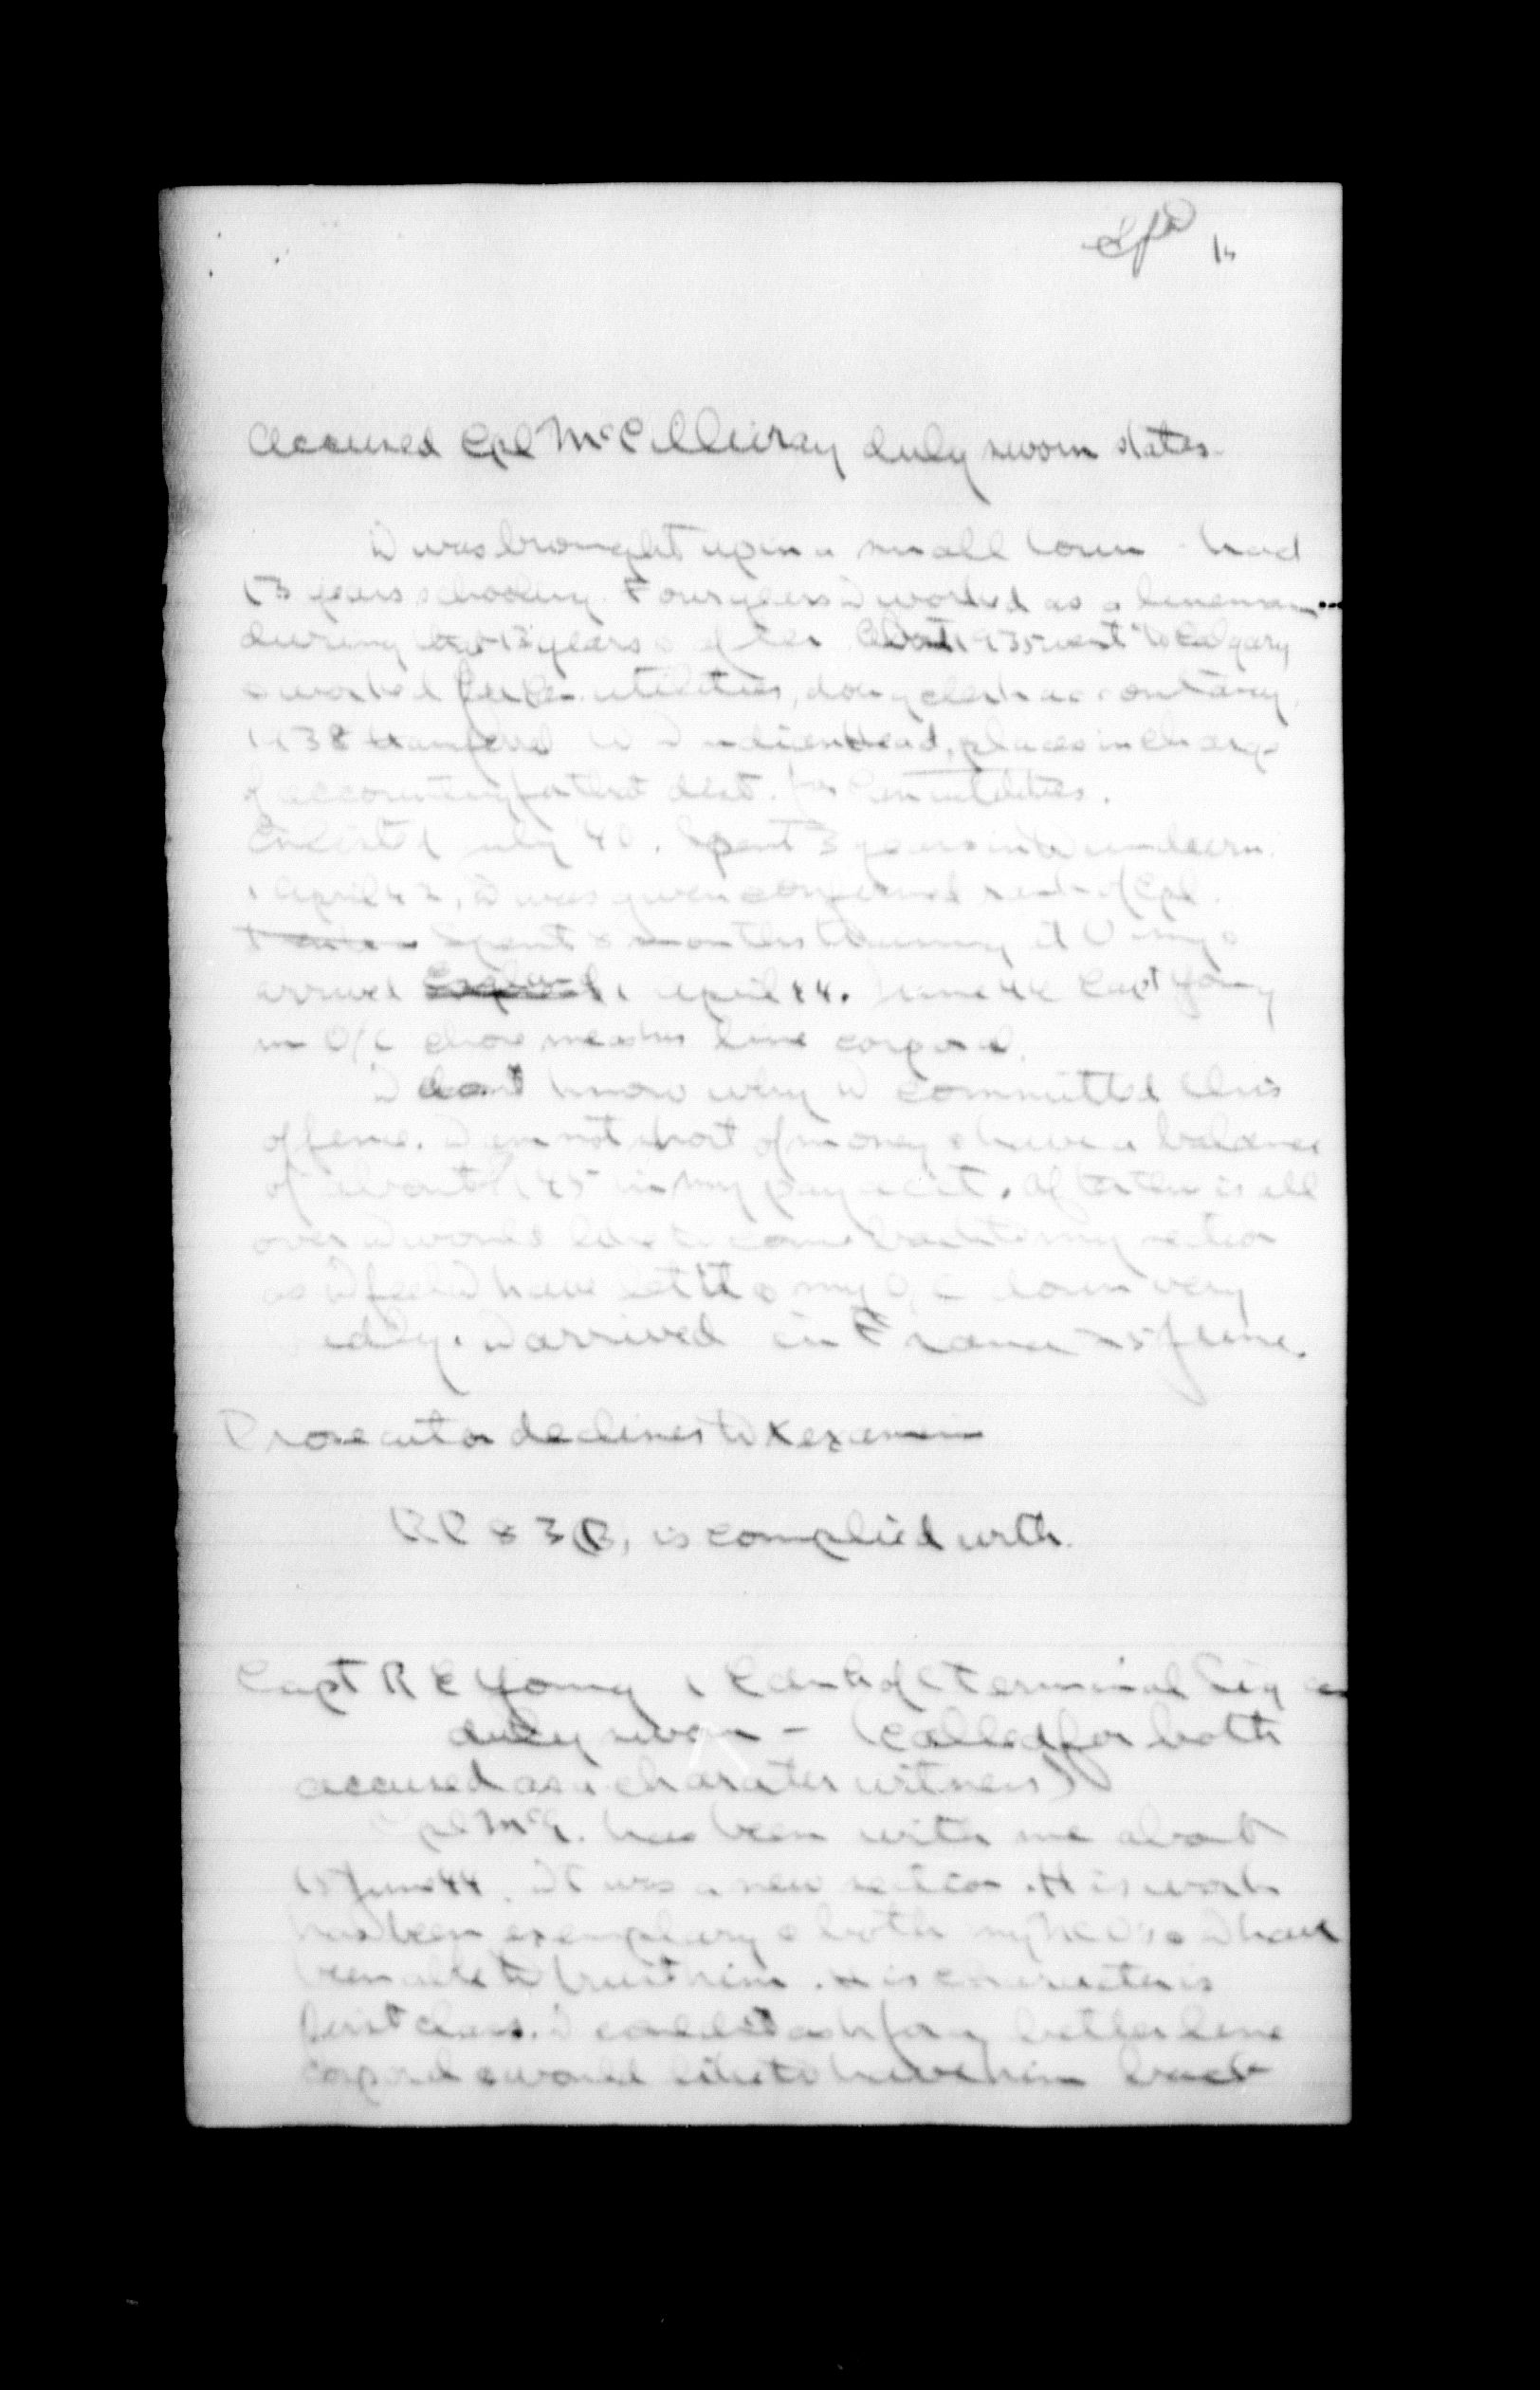 Accused Cpl McGillivray duly sworn states.
I was brought up in a small town had
13 years schooling. Four years I worked as a lineman
during 13 years & after. About 1935 went to Calgary
& worked for Can. utilities, doing clerk accounting.
1938 transfered to Indian Head, places in charge
of accounting for that dist. for Can utilities.
Enlisted July 40. Spent 3 years in Dundurn.
1 April 42, I was given confirmed rank of Cpl.
Spent 8 months training at
arrived England April 44. June 44 Capt Young
m O/C chose me as his line corporal.
I don't know why I committed this
offence. I am not short of money & have a balance
of about 145 in my pay acct. After this is all
over I would like to come back to my section
as I feel I have let it & my O/C down very
I arrived in France June.
Prosecutor declines to X examin
RP 83 (B) is complied with.
Capt R E Young 1 Cdn of C terminal Sig
duly sworn - (called for both
accused as a charater witness)
Cpl McG. has been with me about
15 June 44. It was a new section. His work
has been exemplary & both my NCO's & I have
been able to trust him. His character is
first class. I couldn't ask for a better line
corporal & would like to have him back